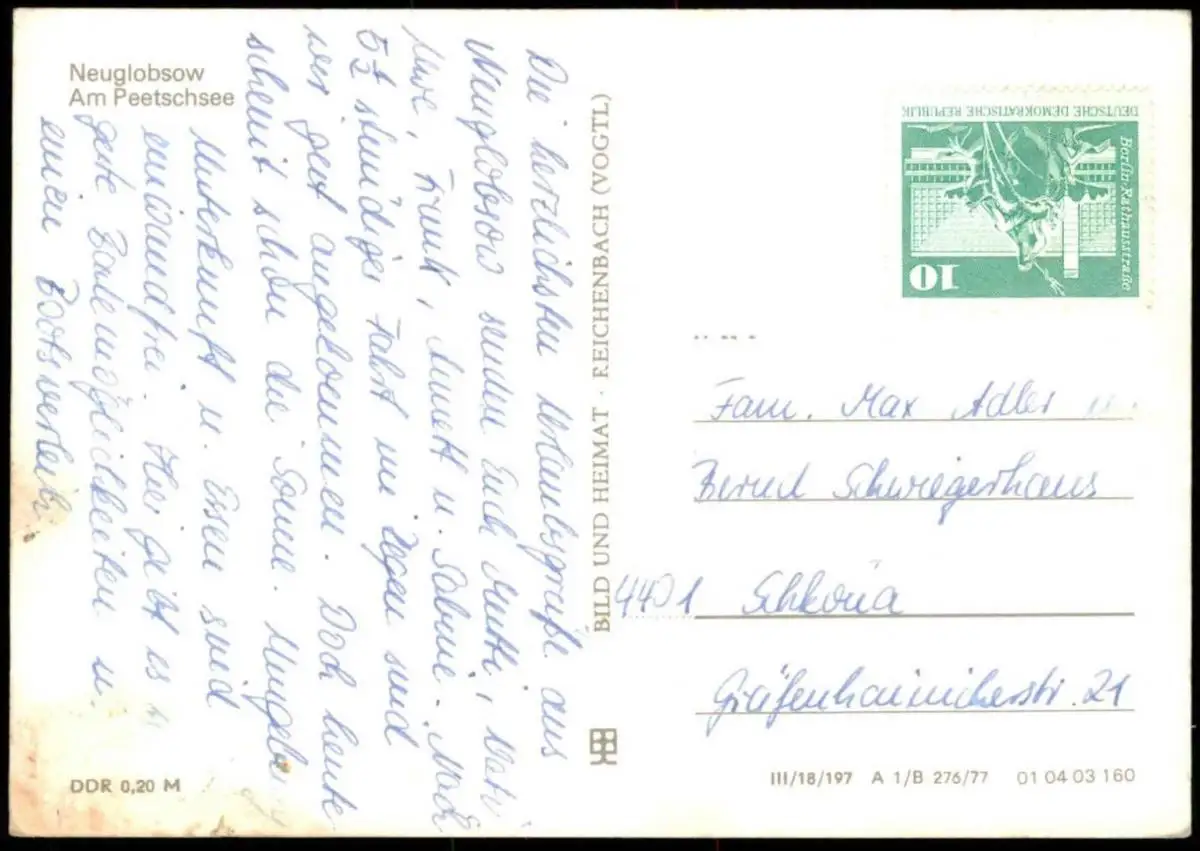 Neuglobsow
Am Peetschsee
Die herzlichsten Urlaubsgrüße aus
Neuglobsow senden Euch Mutti, Vati
Uwe, Frank, Annett u. Sabine. Nach
5½ stündiger Fahrt im Regen sind
wir gut angekommen. Doch heute
scheint schon die Sonne. Umgebu
Unterkunft u. Essen sind
einwandfrei. Hier gibt es
gute Bademöglichkeiten u.
einen Bootsverleih.
DDR 0,20 M
BILD UND HEIMAT · REICHENBACH (VOGTL)
DEUTSCHE DEMOKRATISCHE REPUBLIK
Berlin-Rathausstraße
10
Fam. Max Adler u.
Bernd Schwiegerhaus
4401 Schköna
Gräfenhainicherstr. 21
III/18/197 A 1/B 276/77 01 04 03 160